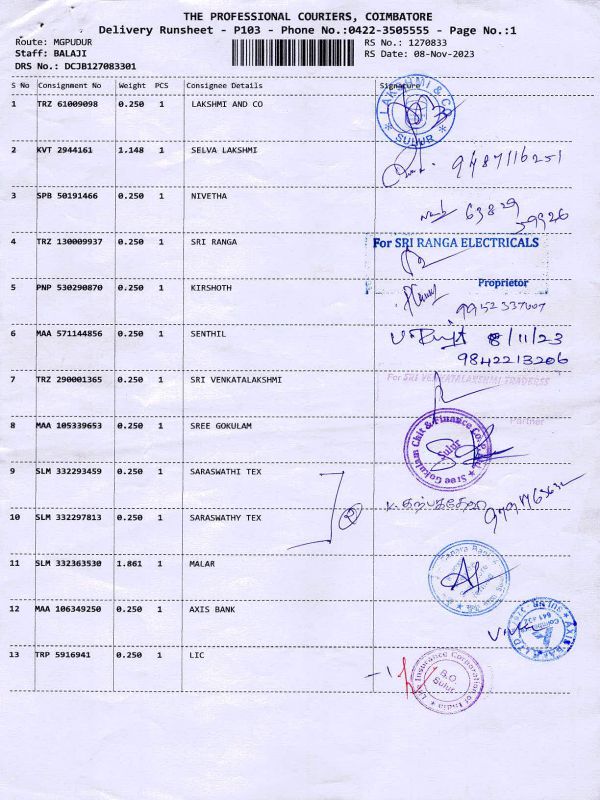 THE PROFESSIONAL COURIERS, COIMBATORE
Delivery Runsheet - P103 - Phone No.:0422-3505555 - Page No.:1
Route: MGPUDUR
Staff: BALAJI
DRS No.: DCJB127083301
RS No.: 1270833
RS Date: 08-Nov-2023
S No Consignment No Weight PCS Consignee Details Signature
1 TRZ 61009098 0.250 1 LAKSHMI AND CO
LAKSHMI & CO
SULUR
2 KVT 2944161 1.148 1 SELVA LAKSHMI
9487116251
3 SPB 50191466 0.250 1 NIVETHA
63829
59926
4 TRZ 130009937 0.250 1 SRI RANGA
For SRI RANGA ELECTRICALS
Proprietor
5 PNP 530290870 0.250 1 KIRSHOTH
6 MAA 571144856 0.250 1 SENTHIL
8/11/23
9842213206
7 TRZ 290001365 0.250 1 SRI VENKATALAKSHMI
For SRI VENKATALAKSHMI TRADERSS
Partner
8 MAA 105339653 0.250 1 SREE GOKULAM
Sree Gokulam Chit & Finance Co. P Ltd
Sulur
9 SLM 332293459 0.250 1 SARASWATHI TEX
10 SLM 332297813 0.250 1 SARASWATHY TEX
11 SLM 332363530 1.861 1 MALAR
Canara Bank
12 MAA 106349250 0.250 1 AXIS BANK
AXIS BANK LTD
13 TRP 5916941 0.250 1 LIC
Life Insurance Corporation of India
B.O.
Sulur